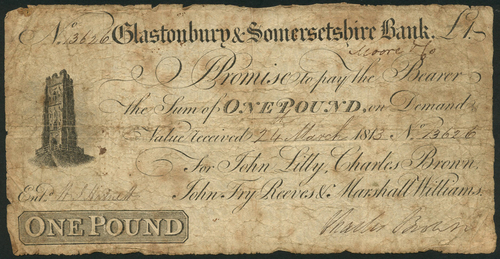 No. 13626 Glastonbury & Somersetshire Bank. £1
I Promise to pay the Bearer
the Sum of ONE POUND, on Demand
Value received 24 March 1813 No. 13626
For John Lilly, Charles Brown,
John Fry Reeves & Marshall Williams.
Entd.
Charles Brown
ONE POUND